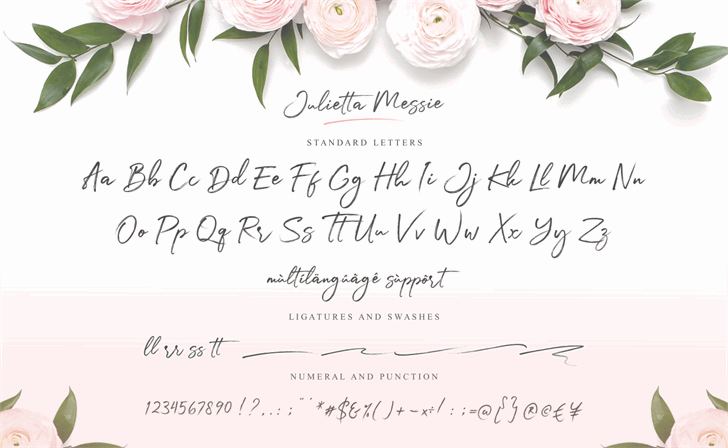 Julietta Messie
STANDARD LETTERS
Aa Bb Cc Dd Ee Ff Gg Hh Ii Jj Kk Ll Mm Nn
Oo Pp Qq Rr Ss Tt Uu Vv Ww Xx Yy Zz
mùltílängúãgê sùppôrt
LIGATURES AND SWASHES
ll rr ss tt
NUMERAL AND PUNCTION
1234567890 ! ? , . : ; " ' * # $ & % ( ) + - × ÷ / : ; = @ { } ® © £ ¥